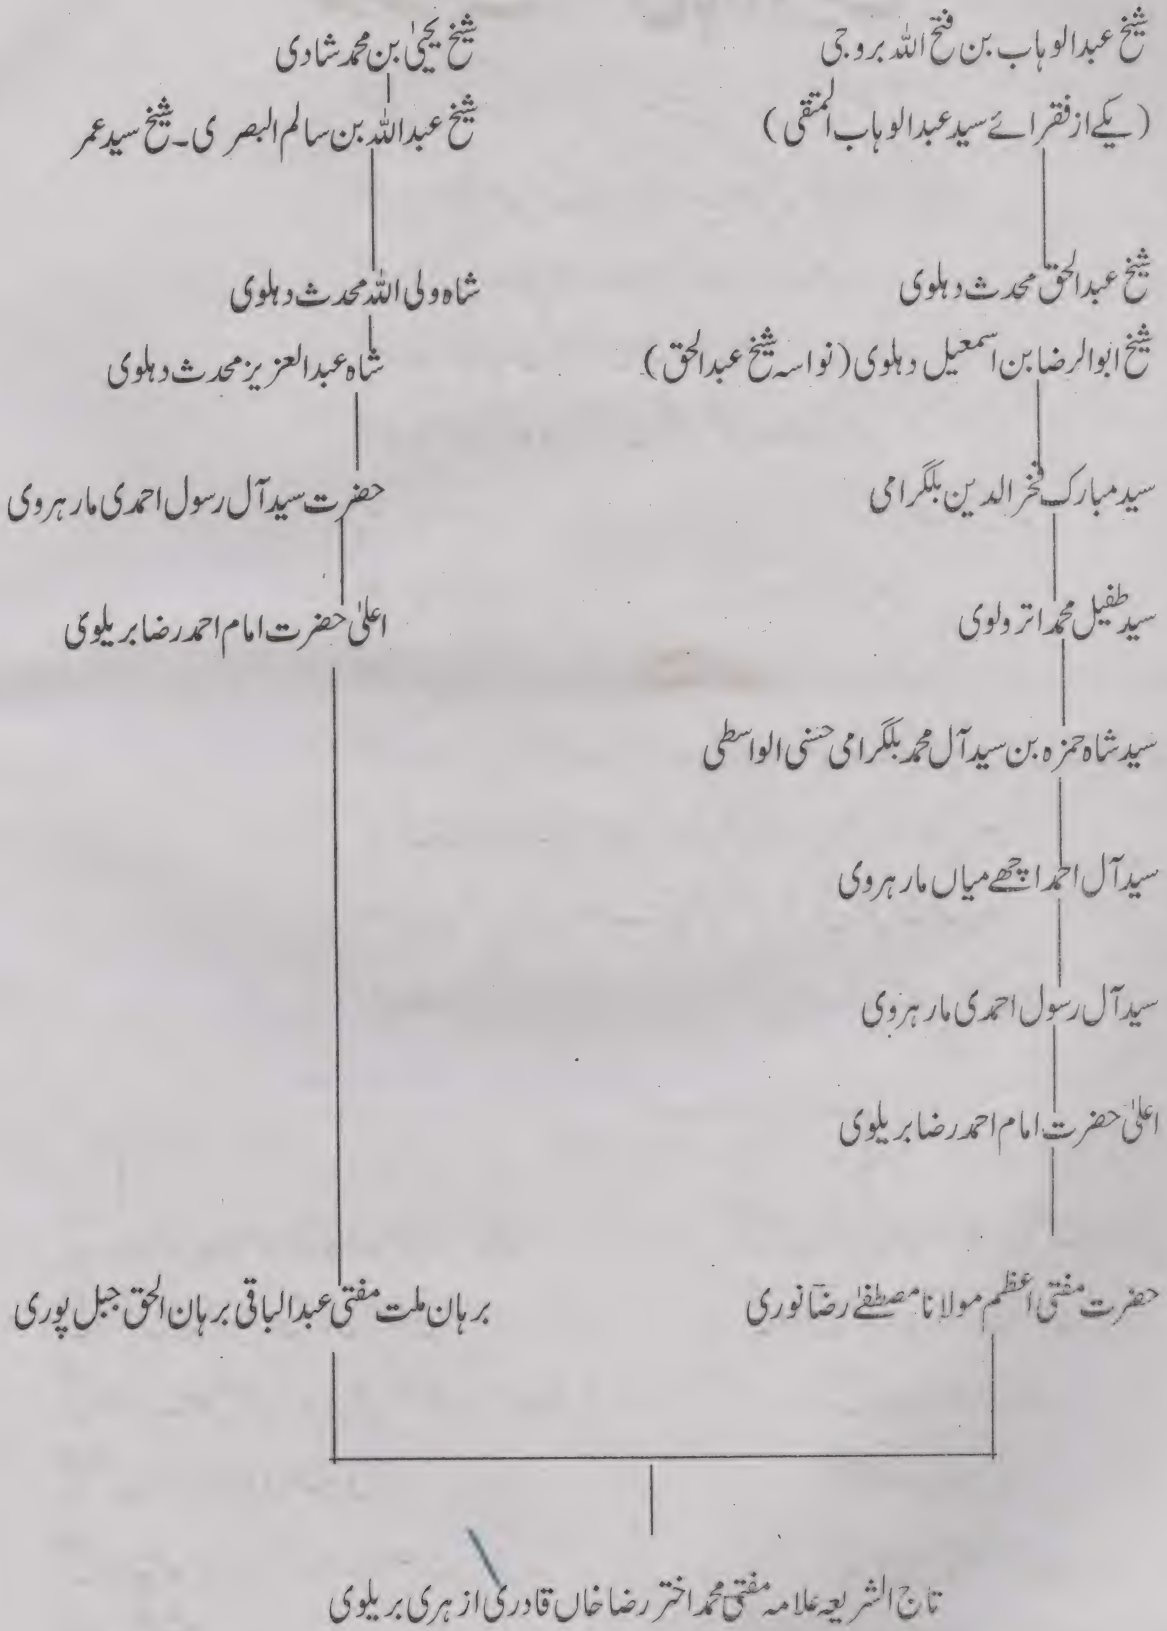 شیخ عبدالوہاب بن فتح اللہ بروجی
(یکے از فقرائے سید عبدالوہاب المتقی)
شیخ عبدالحق محدث دہلوی
شیخ ابوالرضا بن اسمعیل دہلوی (نواسہ شیخ عبدالحق)
سید مبارک فخر الدین بلگرامی
سید طفیل محمد اترولوی
سید شاہ حمزہ بن سید آل محمد بلگرامی حسنی الواسطی
سید آل احمد اچھے میاں مارہروی
سید آل رسول احمدی مارہروی
اعلیٰ حضرت امام احمد رضا بریلوی
حضرت مفتی اعظم مولانا مصطفےٰ رضا نوری
شیخ یحییٰ بن محمد شادی
شیخ عبداللہ بن سالم البصری۔ شیخ سید عمر
شاہ ولی اللہ محدث دہلوی
شاہ عبدالعزیز محدث دہلوی
حضرت سید آل رسول احمدی مارہروی
اعلیٰ حضرت امام احمد رضا بریلوی
برہان ملت مفتی عبدالباقی برہان الحق جبل پوری
تاج الشریعہ علامہ مفتی محمد اختر رضا خاں قادری ازہری بریلوی